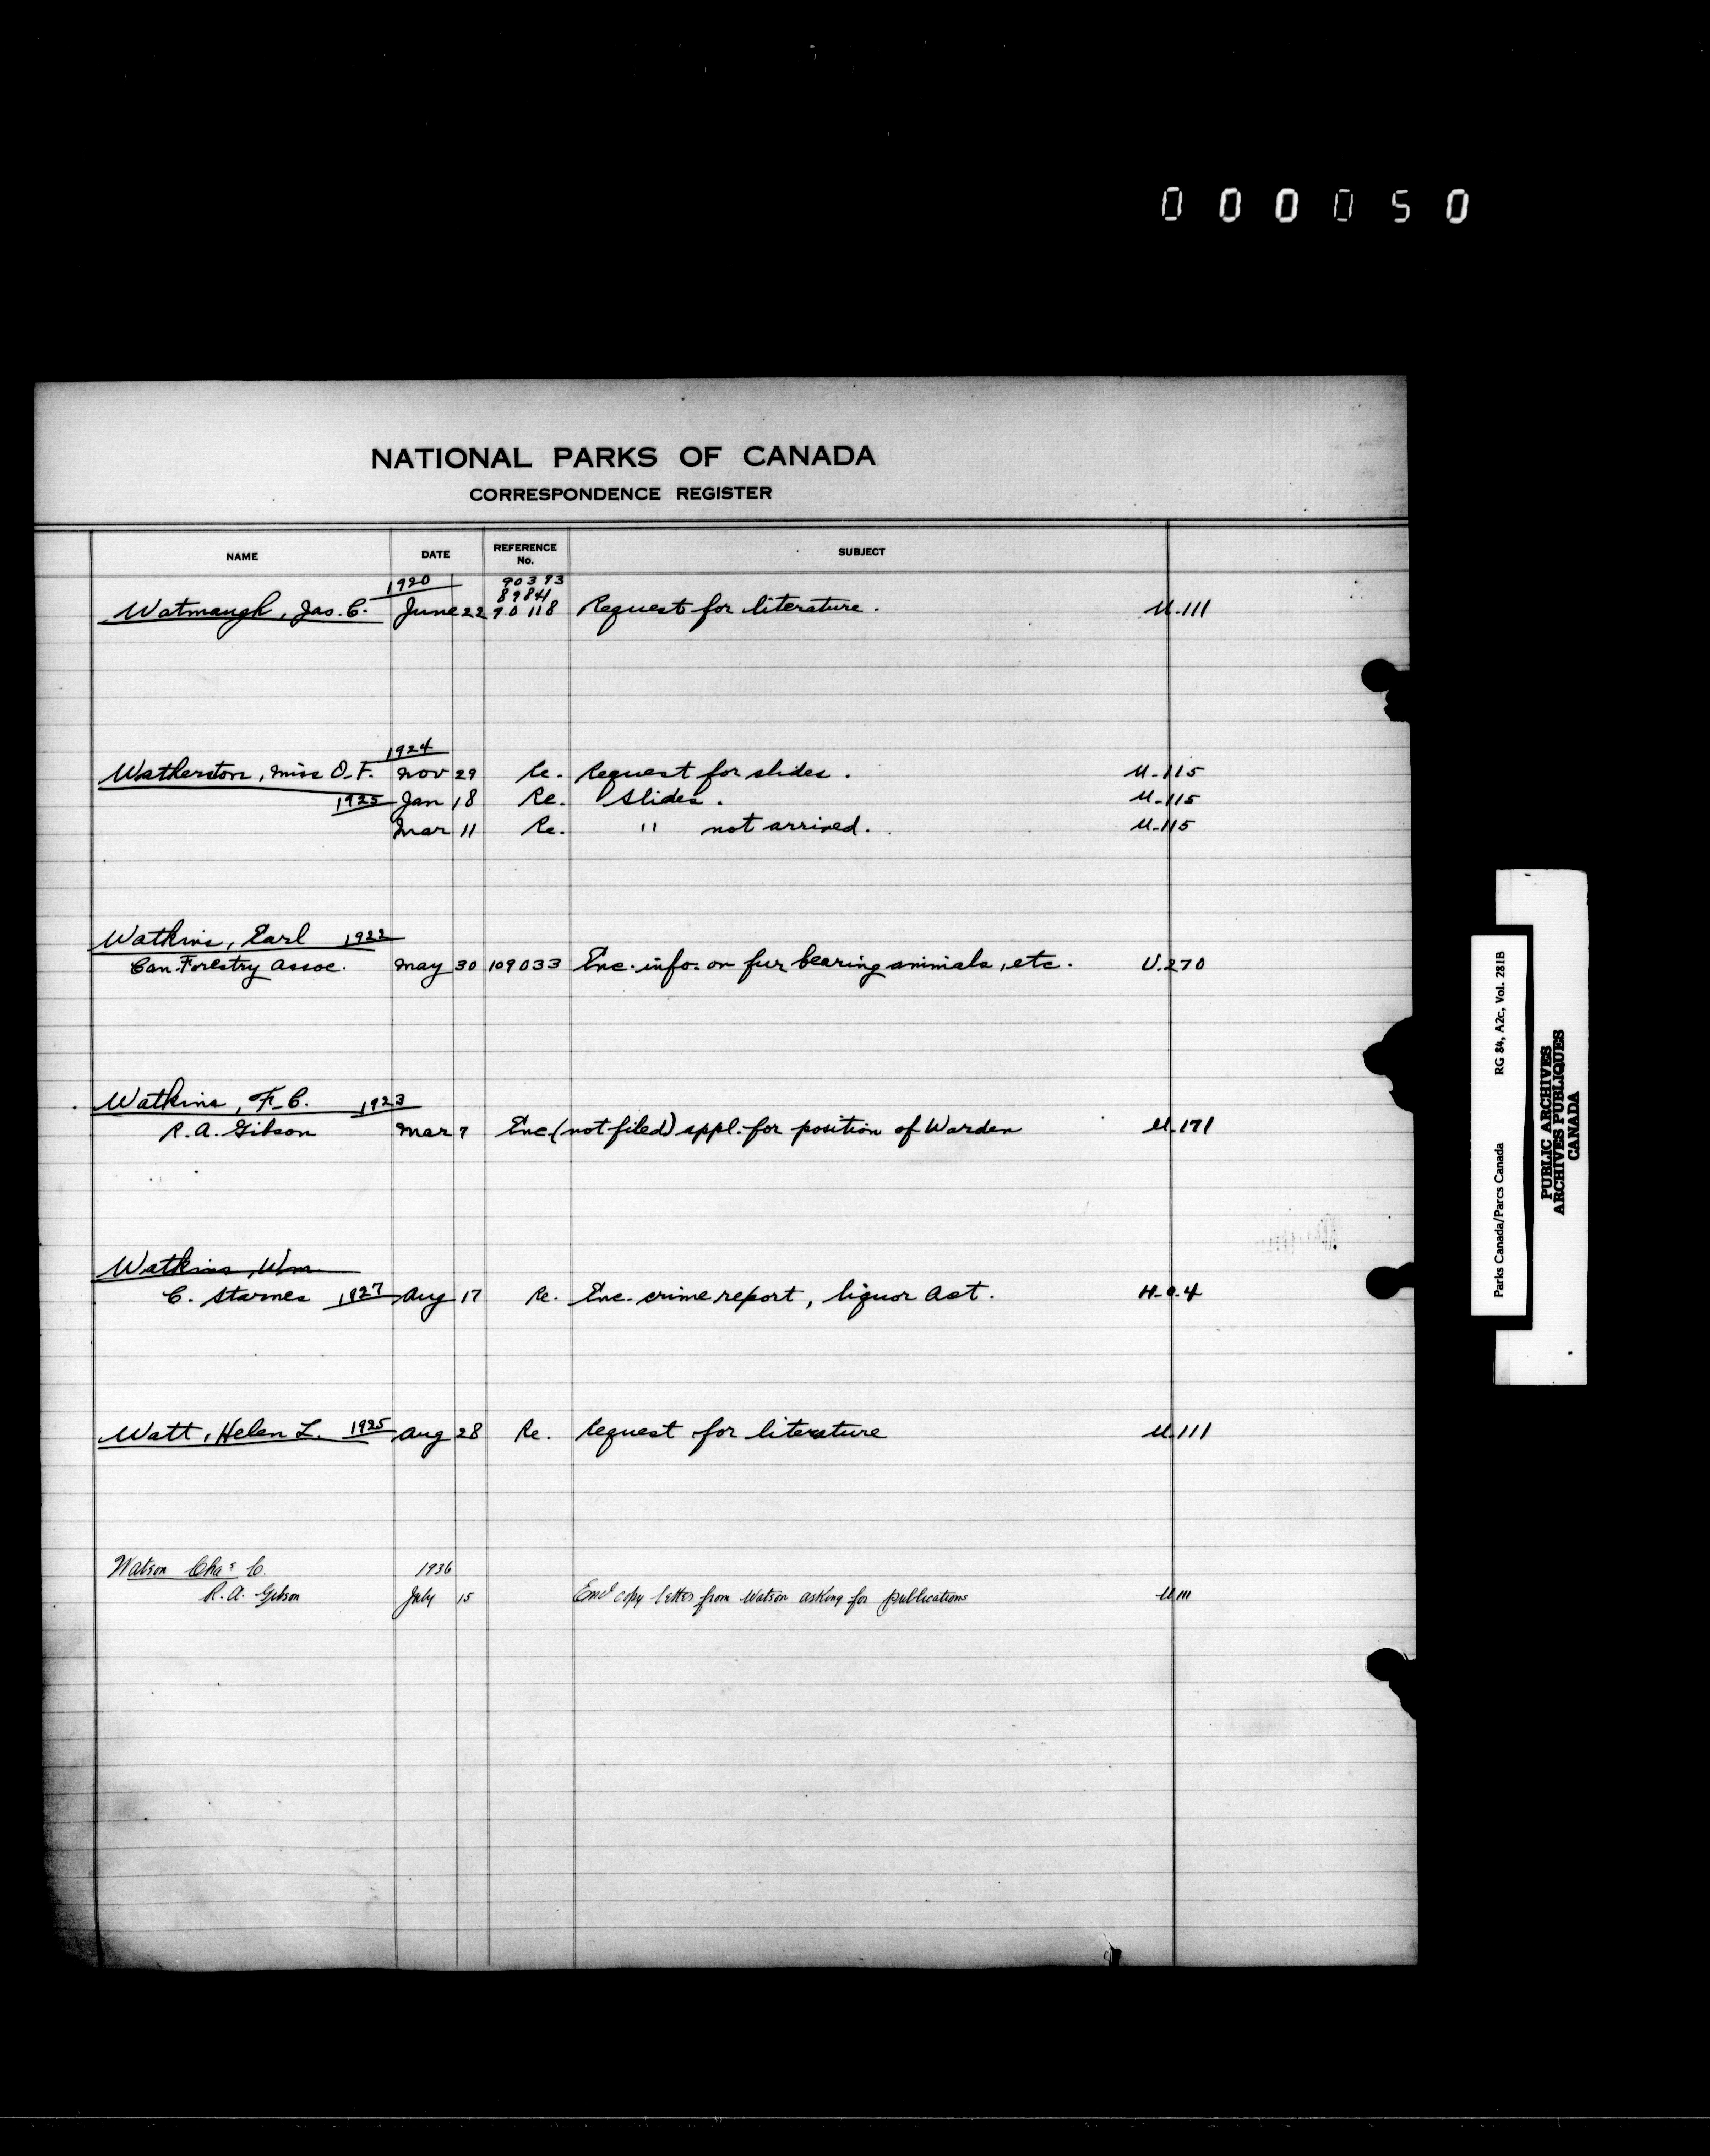 000050
NATIONAL PARKS OF CANADA
CORRESPONDENCE REGISTER
NAME DATE REFERENCE No. SUBJECT
1920 90393
89841
Watmaugh, Jas. C. June 22 90118 Request for literature. U-111
1924
Watherston, Miss O.F. Nov 29 Re. Request for slides. U-115
1925 Jan 18 Re. Slides. U-115
Mar 11 Re. " not arrived. U-115
Watkins, Earl 1922
Can. Forestry Assoc. May 30 109033 Enc. info. on fur bearing animals, etc. U.270
Watkins, F.C. 1923
R.A. Gibson Mar 7 Enc. (not filed) appl. for position of Warden U.171
Watkins, Wm.
C. Starnes 1927 Aug 17 Re. Enc. crime report, liquor Act. H-a-4
Watt, Helen L. 1925 Aug 28 Re. Request for literature U-111
Watson Chas C. 1936
R.A. Gibson July 15 Encl copy letter from Watson asking for publications U 111
Parks Canada/Parcs Canada RG 84, A2c, Vol. 281B
PUBLIC ARCHIVES
ARCHIVES PUBLIQUES
CANADA